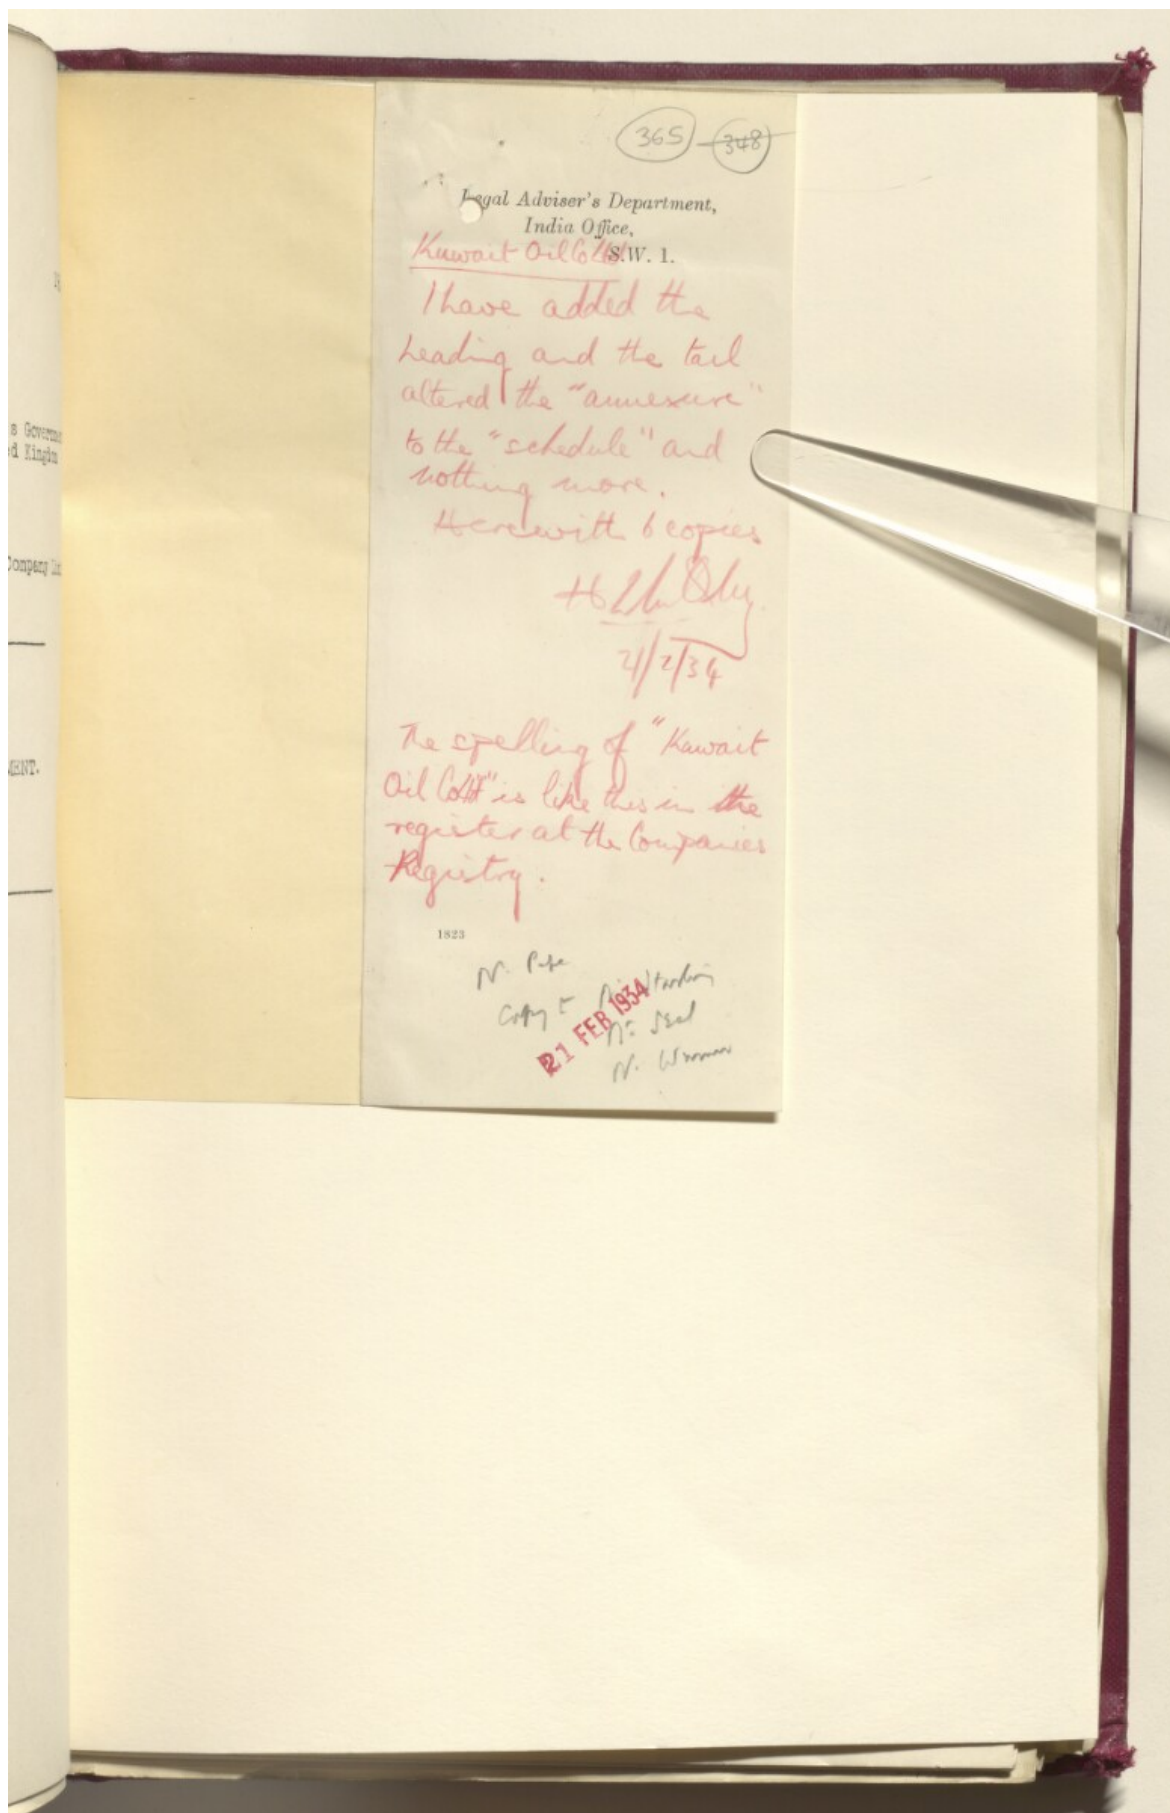 365 348
Legal Adviser's Department,
India Office,
S.W. 1.
Kuwait Oil Co Ltd
I have added the
heading and the tail
altered the "annexure"
to the "schedule" and
nothing more.
Herewith 6 copies
21/2/34
The spelling of "Kuwait
Oil Co Ltd" is like this in the
register at the Companies
Registry.
1823
Copy to
21 FEB 1934
s Governme
d Kingdo
Company Li
MENT.